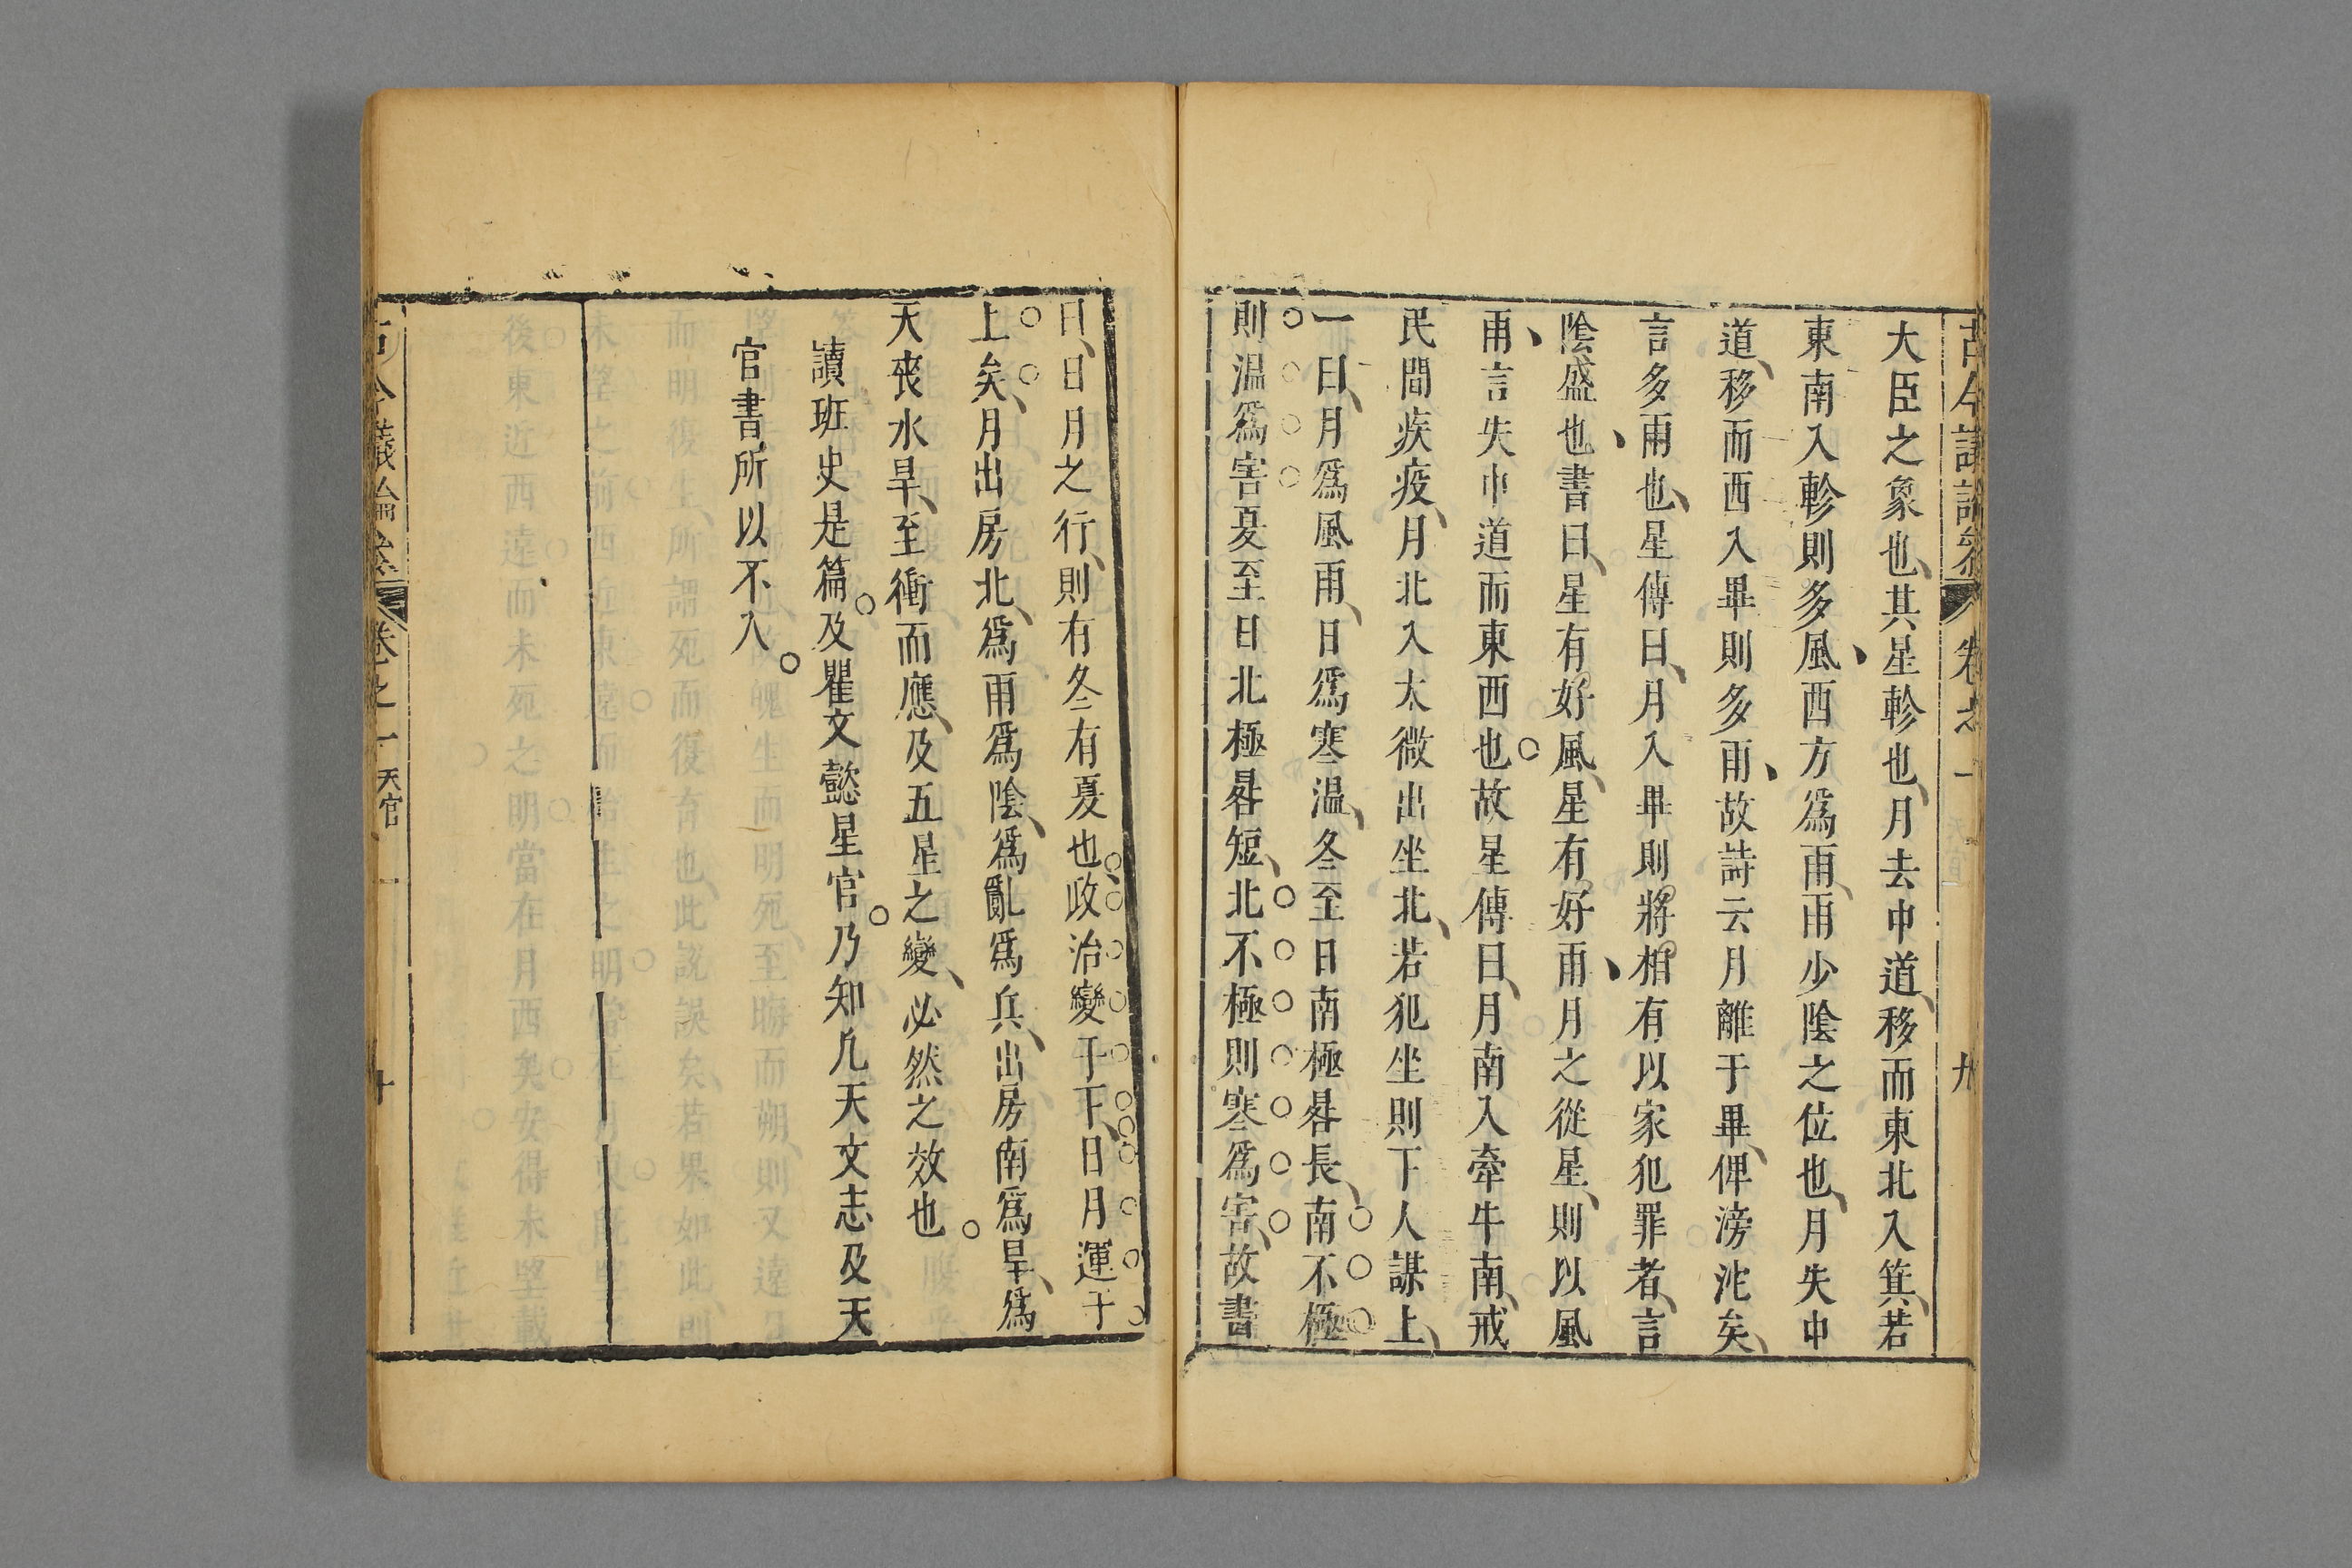 古今議論參 卷之一 九
大臣之象也、其星軫也、月去中道、移而東北入箕、若
東南入軫則多風、西方爲雨、雨少陰之位也、月失中
道、移而西入畢則多雨、故詩云月離于畢、俾滂沱矣、
言多雨也、星傳曰、月入畢則將相有以家犯罪者、言
陰盛也、書曰、星有好風、星有好雨、月之從星、則以風
雨、言失中道而東西也。故星傳曰、月南入牽牛南、戒
民間疾疫、月北入太微出坐北、若犯坐則下人謀上、
一曰、月爲風雨、日爲寒溫、冬至日南極晷長、南不極
則溫爲害夏至日北極晷短、北不極則寒爲害、故書
曰、日月之行、則有冬有夏也、政治變于下、日月運于
上矣、月出房北、爲雨爲陰、爲亂爲兵、出房南爲旱、爲
天喪水旱、至衝而應、及五星之變、必然之效也。
讀班史是篇。及瞿文懿星官。乃知凡天文志及天
官書所以不入。
古今議論參 卷之一 天官一 十